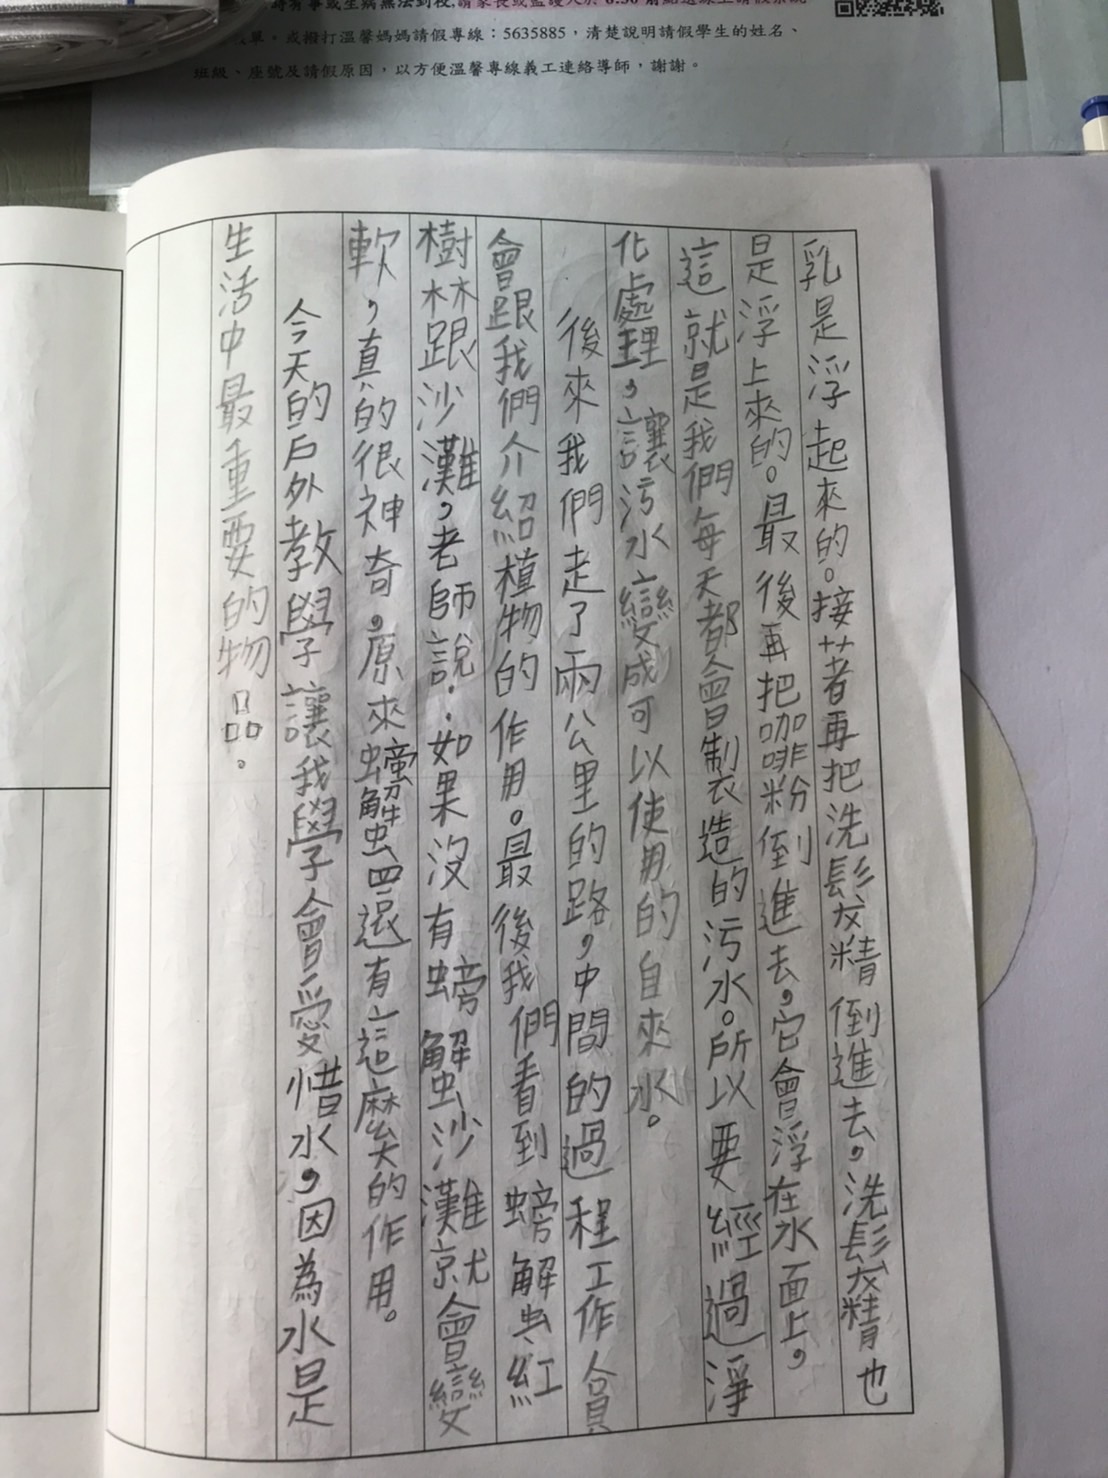 時有事或生病無法到校,請家長或監護人於
或撥打溫馨媽媽請假專線：5635885，清楚說明請假學生的姓名、
班級、座號及請假原因，以方便溫馨專線義工連絡導師，謝謝。
乳是浮起來的。接著再把洗髮精倒進去，洗髮精也
是浮上來的。最後再把咖啡粉倒進去，它會浮在水面上，
這就是我們每天都會製造的污水。所以要經過淨
化處理，讓污水變成可以使用的自來水。
後來我們走了兩公里的路，中間的過程工作人員
會跟我們介紹植物的作用。最後我們看到螃蟹、紅
樹林跟沙灘，老師說：如果沒有螃蟹沙灘就會變
軟，真的很神奇。原來螃蟹還有這麼的作用。
今天的戶外教學讓我學會愛惜水，因為水是
生活中最重要的物品。